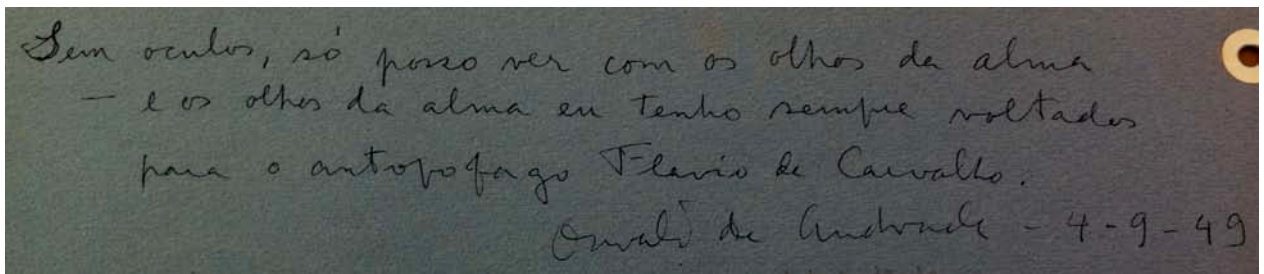 Sem oculos, só posso ver com os olhos da alma
— e os olhos da alma eu tenho sempre voltados
para o antopofago Flavio de Carvalho.
Oswald de Andrade - 4-9-49